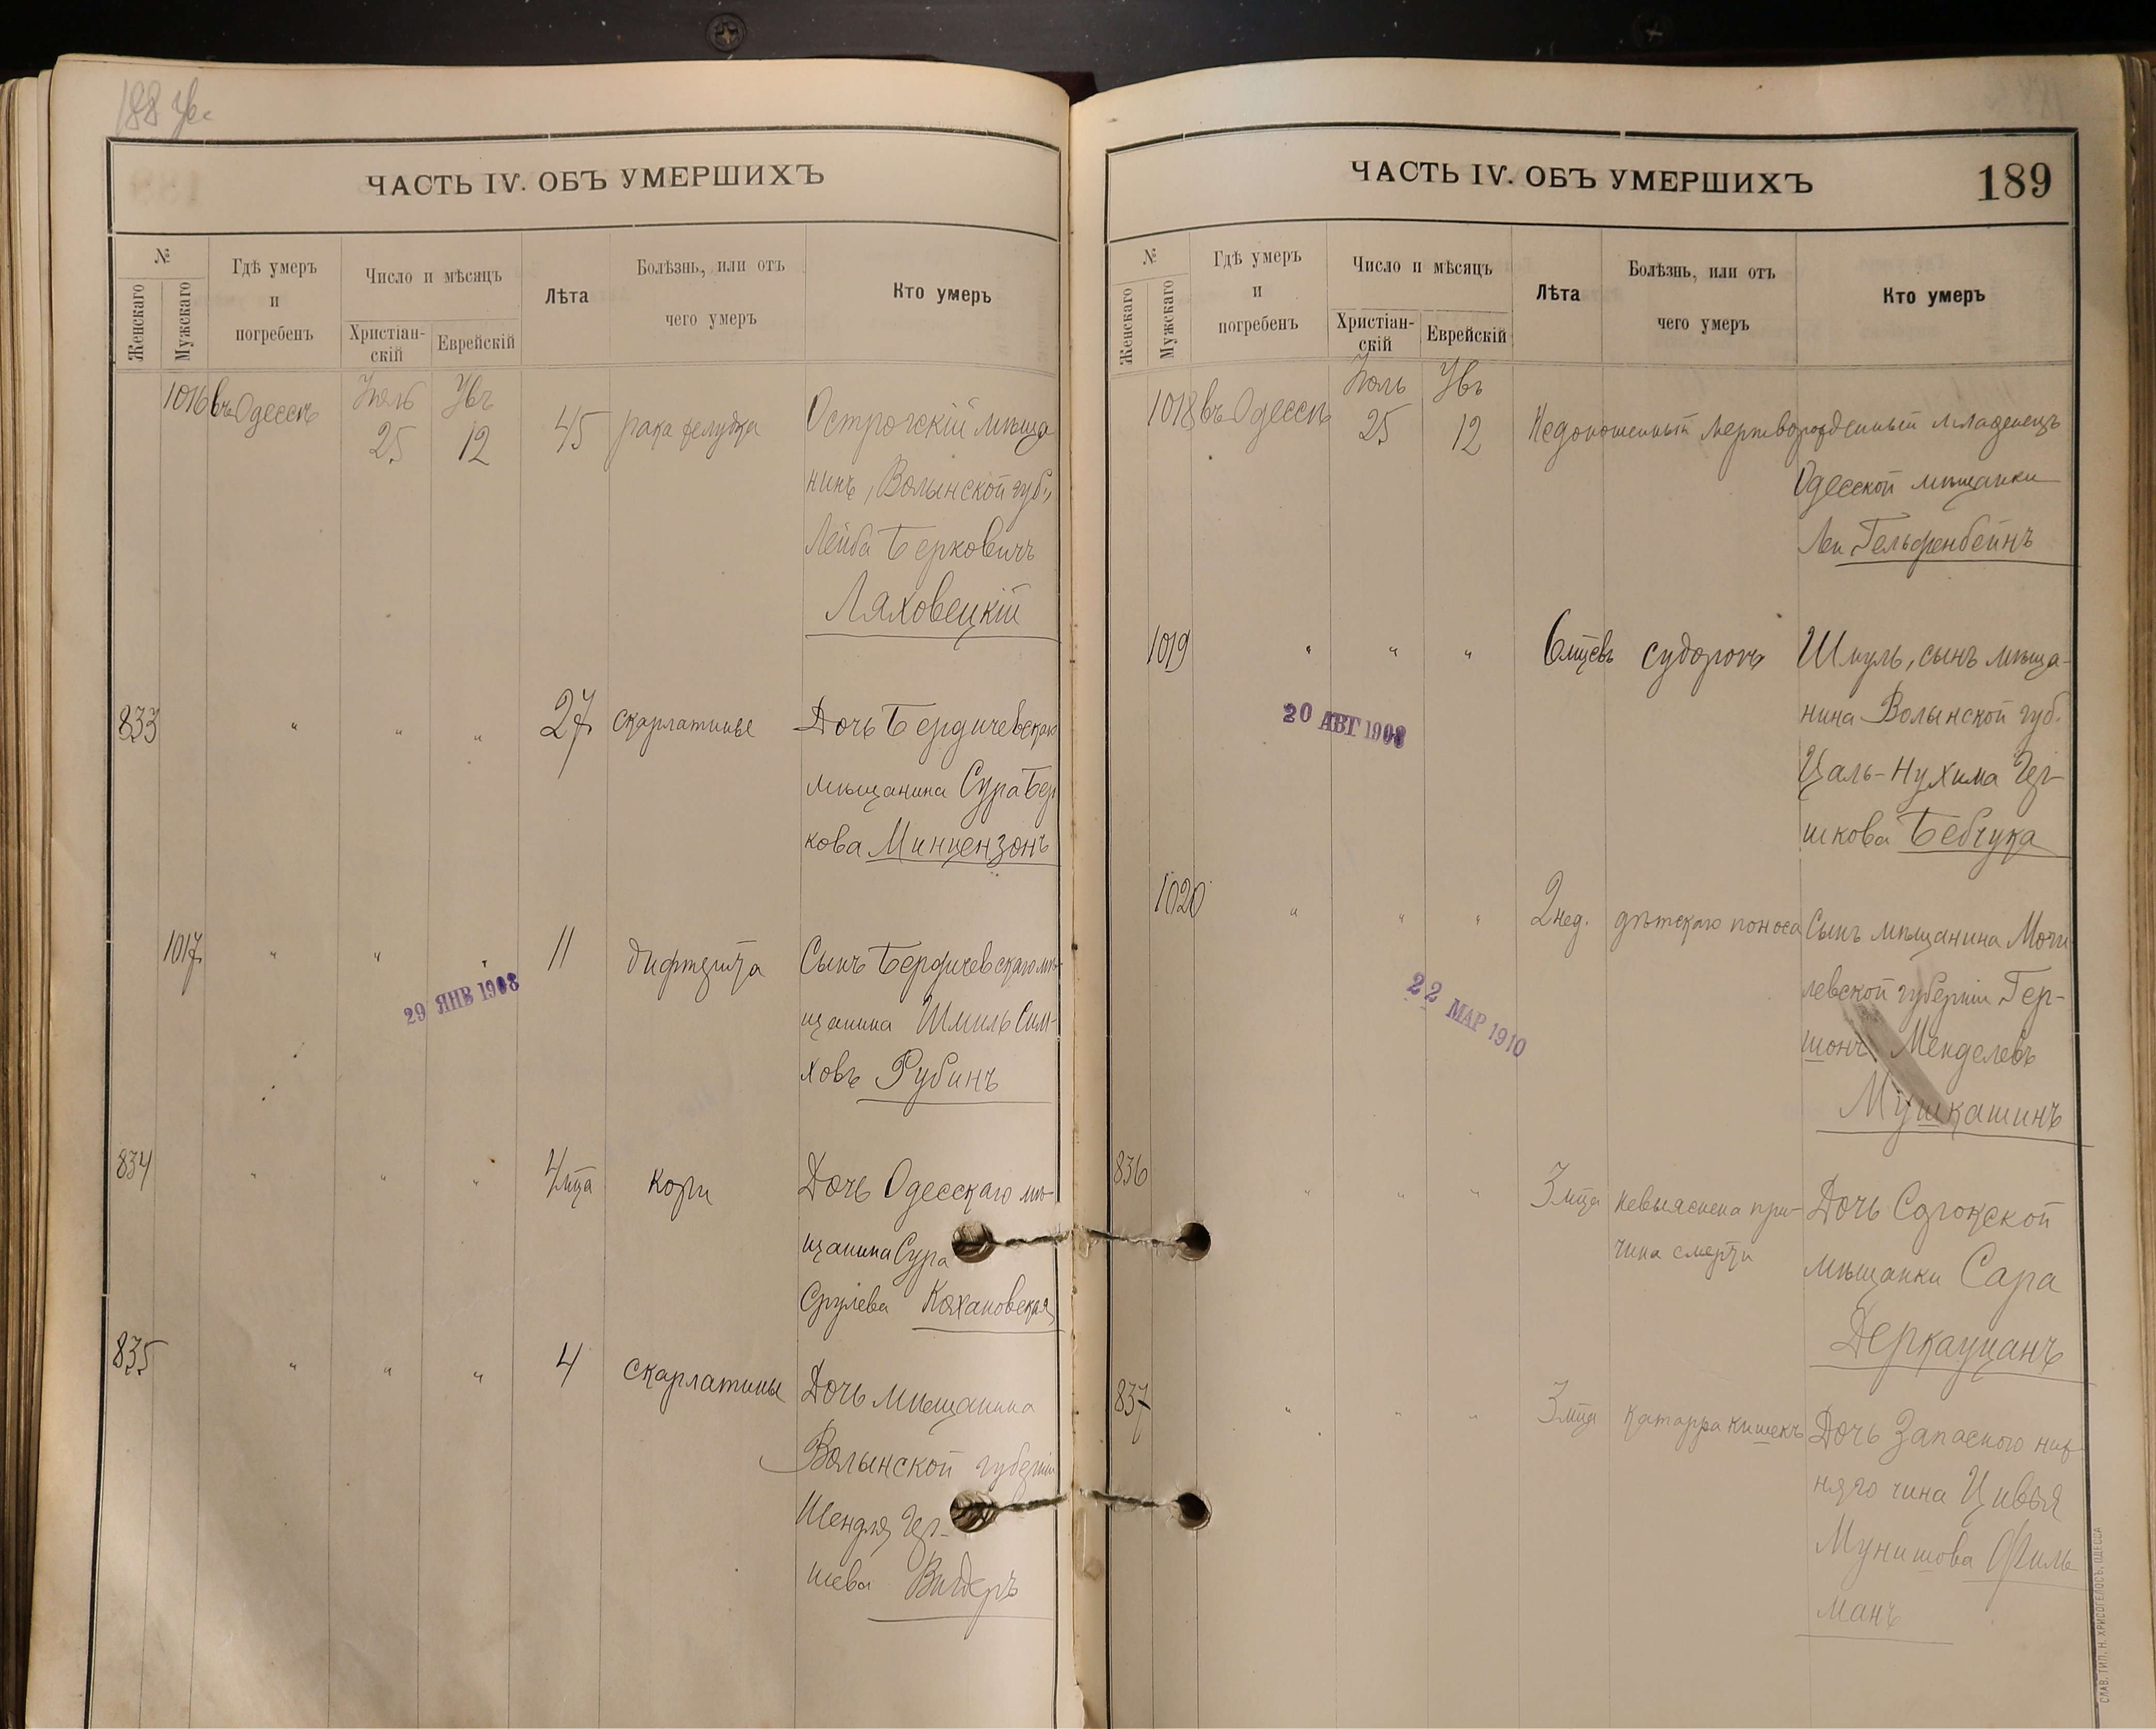 188 
ЧАСТЬ IV. ОБЪ УМЕРШИХЪ
№
Женскаго
Мужскаго
Гдѣ умеръ
и
погребенъ
Число и мѣсяцъ
Христіан-
скій
Еврейскій
Лѣта
Болѣзнь, или отъ
чего умеръ
Кто умеръ
1016 въ Одессѣ Іюль 25 12 45 рака желудка Острогскій мѣща
нинъ, Волынской губ.,
Лейба Берковичъ
Ляховецкій
833 " " " 27 скарлатины Дочь Бердичевскаго
мѣщанина Сура Бер
кова Минцензонъ
1017 " " " 11 дифтерита Сынъ Бердичевскаго мѣ-
щанина Шмиль Сим-
ховъ Рубинъ
29 ЯНВ 1908
834 " " " 4 м̃ца кори Дочь Одесскаго мѣ-
щанина Сура
Срулева Кохановская
835 " " " 4 скарлатины Дочь мѣщанина
Волынской губерніи
Шендля Гер-
шева
ЧАСТЬ IV. ОБЪ УМЕРШИХЪ
189
№
Женскаго
Мужскаго
Гдѣ умеръ
и
погребенъ
Число и мѣсяцъ
Христіан-
скій
Еврейскій
Лѣта
Болѣзнь, или отъ
чего умеръ
Кто умеръ
1018 въ Одессѣ Іюль 25 12 Недоношенный мертворожденный младенецъ
Одесской мѣщанки
Леи Гельфенбейнъ
1019 " " " 6 м̃цевъ судорогъ Шмуль, сынъ мѣща-
нина Волынской губ.
Цаль-Нухима Гер-
шкова Бебчука
20 АВГ 1908
1020 " " " 2 нед. дѣтскаго поноса Сынъ мѣщанина Моги
левской губерніи Гер-
шонъ Менделевъ
Мушкашинъ
22 МАР 1910
836 " " " 3 м̃ца невыяснена при-
чина смерти
Дочь Сорокской
мѣщанки Сара
Деркауцанъ
837 " " " 3 м̃ца катарра кишекъ Дочь Запасного ниж
няго чина Цивья
Мунишова Филь
манъ
СЛАВ. ТИП. Н. ХРИСОГЕЛОСЪ, ОДЕССА